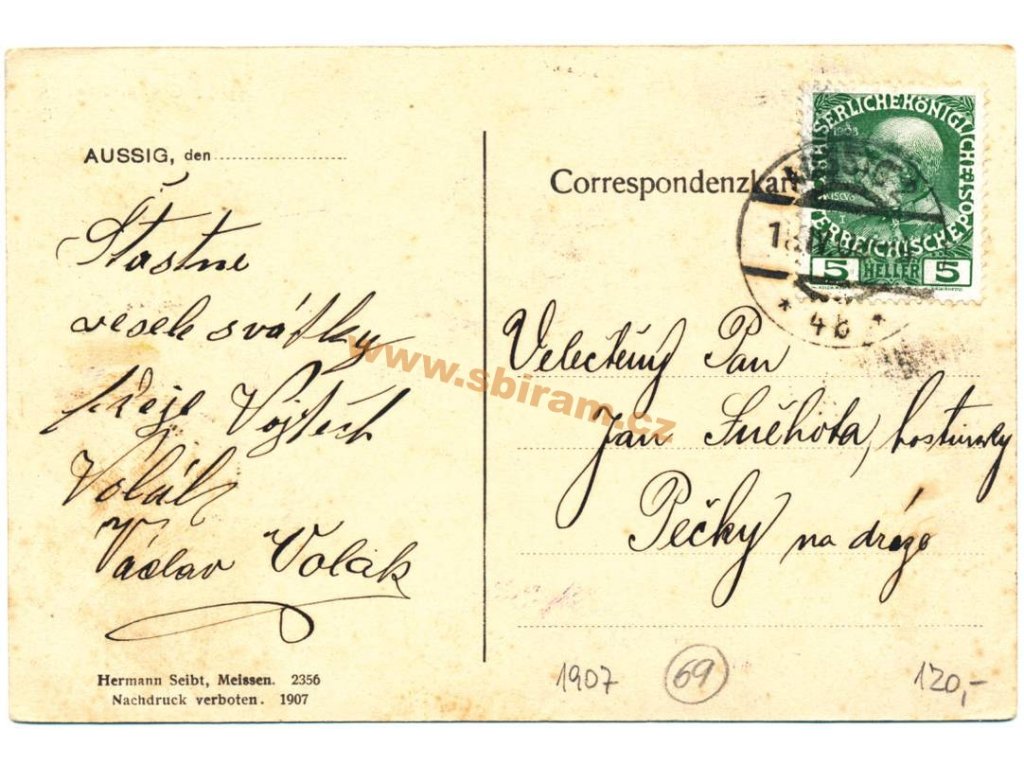 AUSSIG, den
Šťastne
vesele svátky
přeje Vojtěch
Volák
Václav Volák
Hermann Seibt, Meissen. 2356
Nachdruck verboten. 1907
Correspondenzkar
KAISERLICHE KÖNIGLICHE
POST
ÖSTERREICHISCHE
5 HELLER 5
AUSSIG
* 4b *
Velectěný Pan
Jan Suchota, hostinský
Pečky na dráze
www.sbiram.cz
1907 69 120,-